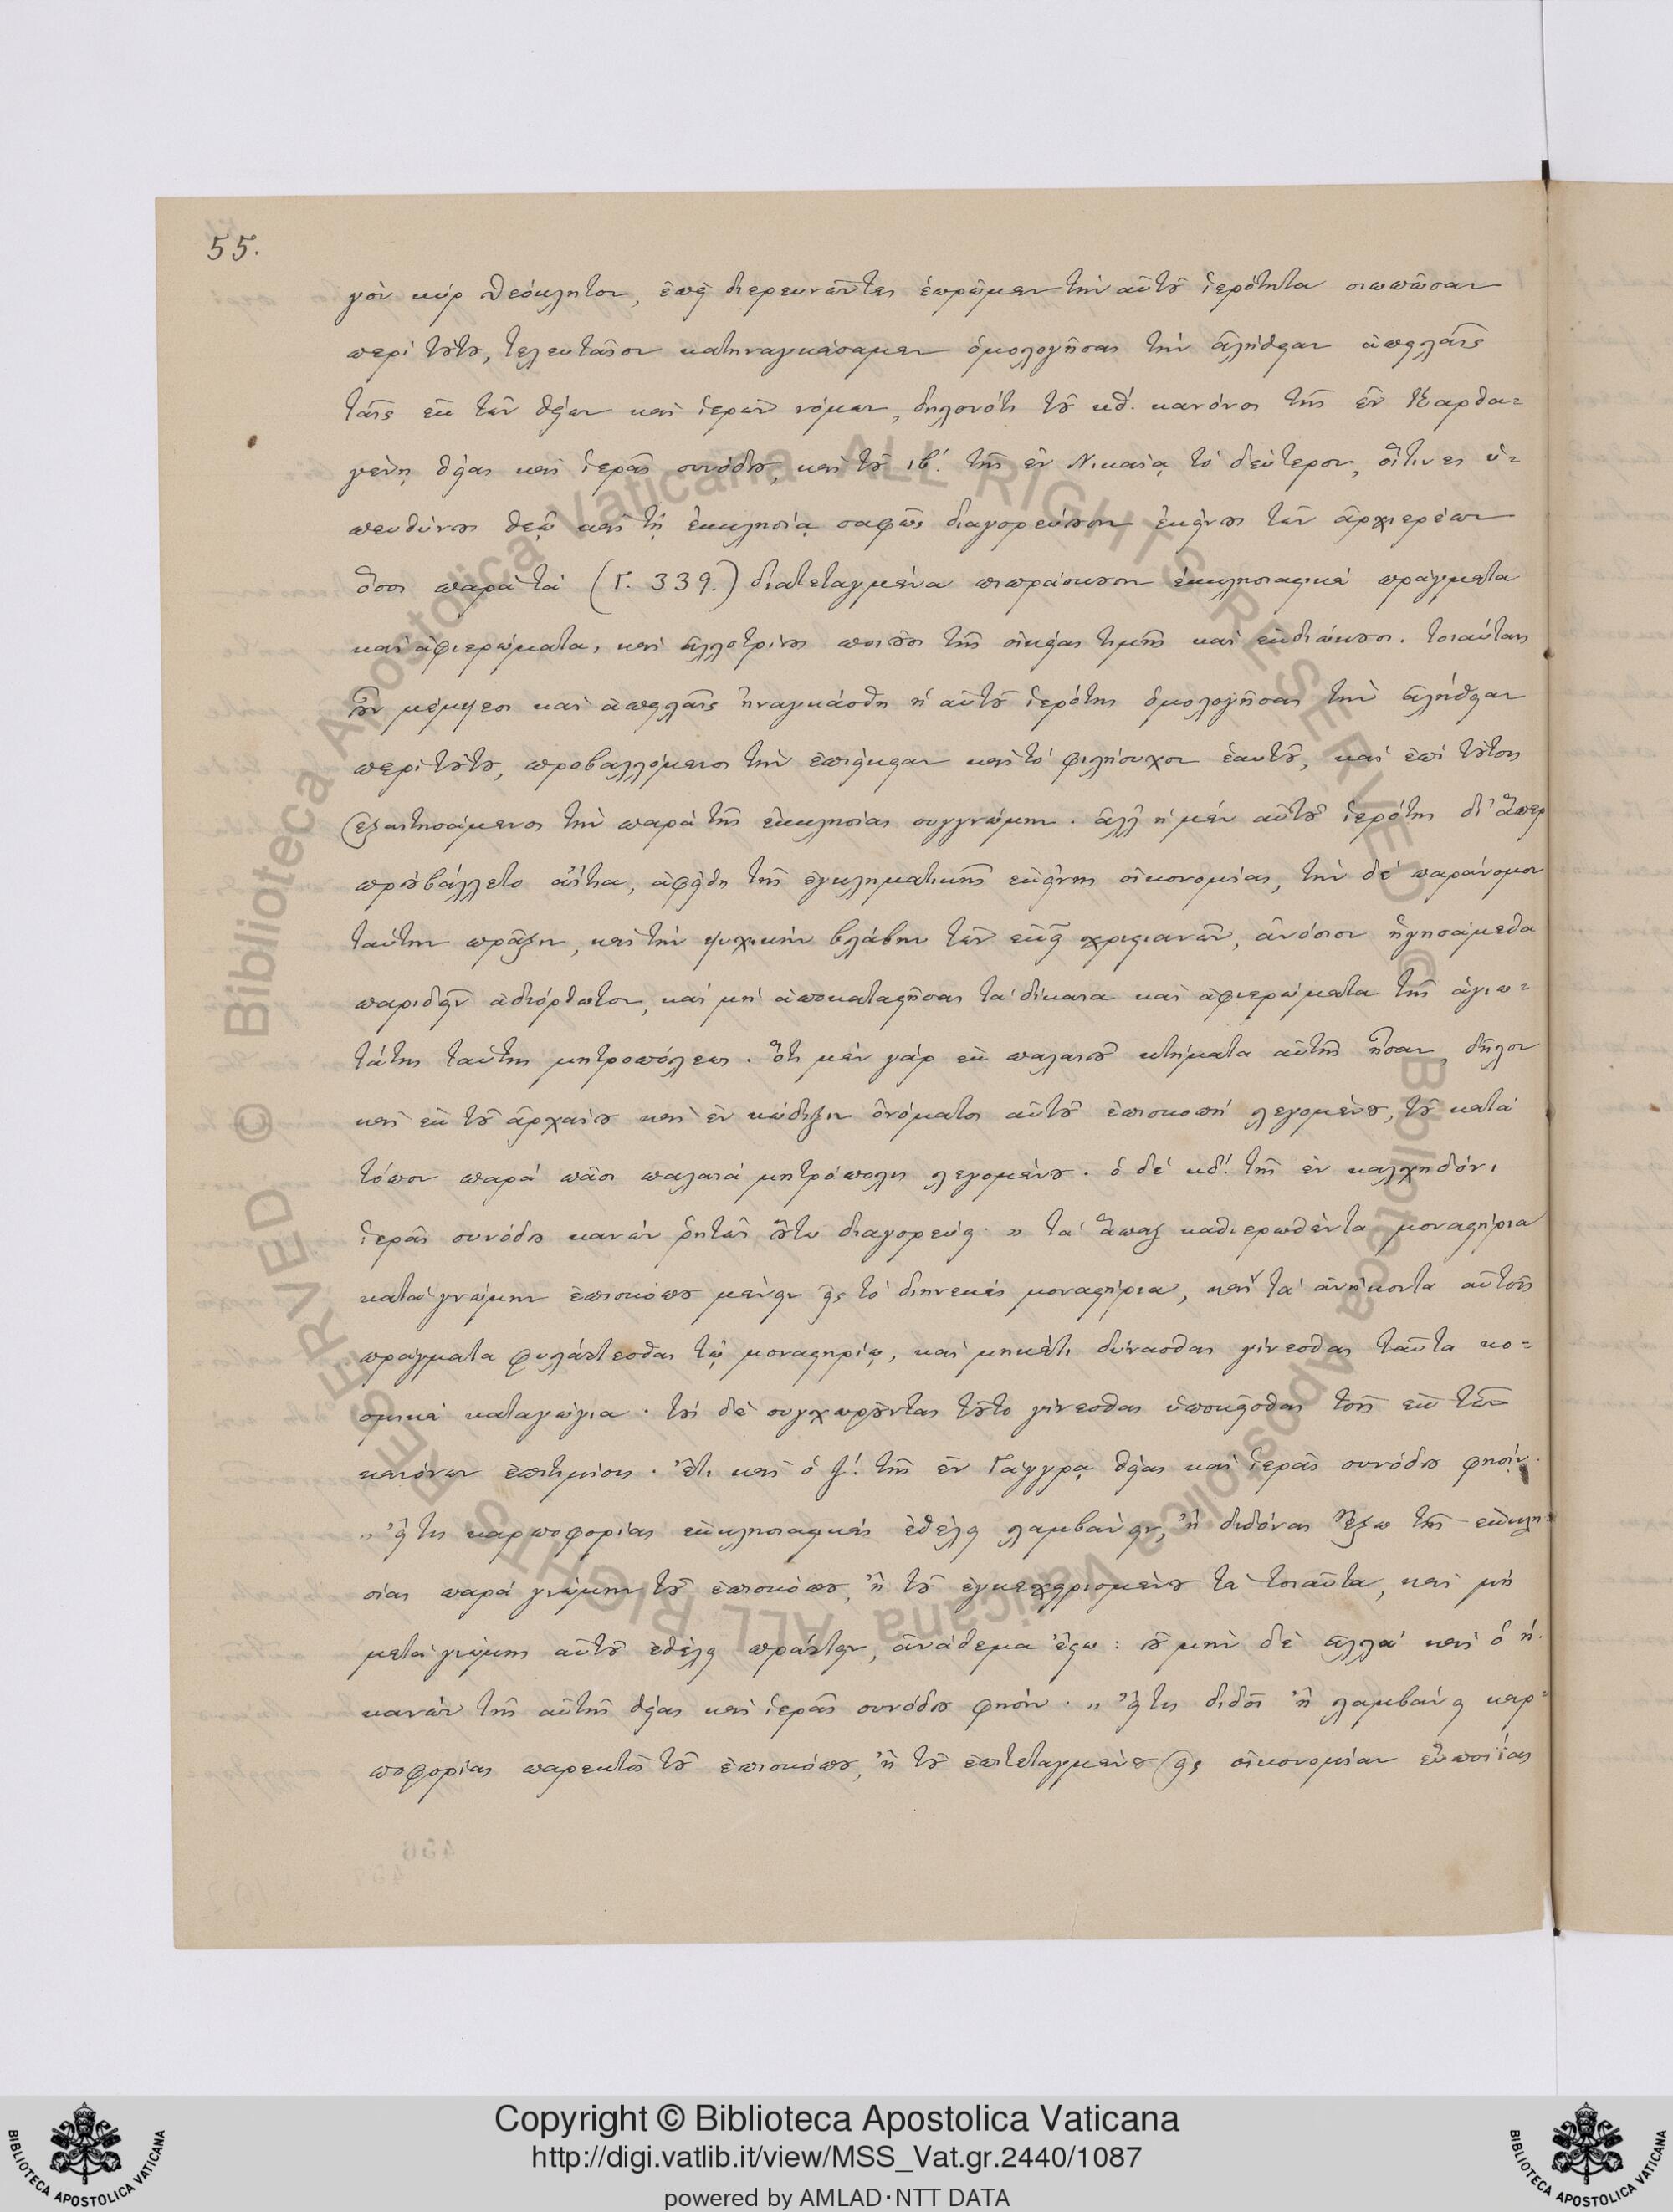 55.
γὸν κύρ Θεόκλητον, ἐπεὶ διερευνῶντες ἑωρῶμεν τὴν αὐτοῦ ἱερότητα σιωπῶσαν
περὶ τούτου, τελευταῖον κατηναγκάσαμεν ὁμολογῆσαι τὴν ἀλήθειαν ἀπειλαῖς
ταῖς ἐκ τῶν θείων καὶ ἱερῶν νόμων, δηλονότι τοῦ κθ. κανόνος τῆς ἐν Καρθα=
γένῃ θείας καὶ ἱερᾶς συνόδου, καὶ τοῦ ιβ΄. τῆς ἐν Νικαίᾳ τὸ δεύτερον, οἵτινες ὑ=
πευθύνους θεῷ καὶ τῇ ἐκκλησίᾳ σαφῶς διαγορεύουσιν ἐκείνους τῶν ἀρχιερέων
ὅσοι παρὰ τὰ (Γ. 339.) διατεταγμένα πιπράσκουσιν ἐκκλησιαστικὰ πράγματα
καὶ ἀφιερώματα, καὶ ἀλλοτρίους ποιοῦσι τῆς οἰκείας τιμῆς καὶ ἐκδιώκουσι. τοιαύταις
οὖν μέμψεσι καὶ ἀπειλαῖς ἠναγκάσθη ἡ αὐτοῦ ἱερότης ὁμολογῆσαι τὴν ἀλήθειαν
περὶ τούτου, προβαλλόμενος τὴν ἐπιείκειαν καὶ τὸ φιλήσυχον ἑαυτοῦ, καὶ ἐπὶ τούτοις
ἐξαιτησάμενος τὴν παρὰ τῆς ἐκκλησίας συγγνώμην. ἀλλ' ἡ μὲν αὐτοῦ ἱερότης δι' ἅπερ
προὐβάλλετο αἴτια, ἀφείθη τῆς ἐγκληματικῆς ἐκείνης οἰκονομίας, τὴν δὲ παράνομον
ταύτην πρᾶξιν, καὶ τὴν ψυχικὴν βλάβην τῶν ἐκεῖ χριστιανῶν, ἀνόσιον ἡγησάμεθα
παριδεῖν ἀδιόρθωτον, καὶ μὴ ἀποκαταστῆσαι τὰ δίκαια καὶ ἀφιερώματα τῆς ἁγιω=
τάτης ταύτης μητροπόλεως. ὅτι μὲν γὰρ ἐκ παλαιοῦ κτήματα αὐτῆς ἦσαν, δῆλον
καὶ ἐκ τοῦ ἀρχαίου καὶ ἐν κώδιξιν ὀνόματος αὐτοῦ ἐπισκοπὴ λεγομένου, τοῦ κατὰ
τόπον παρὰ πᾶσι παλαιὰ μητρόπολις λεγομένου. ὁ δὲ κδ΄. τῆς ἐν καλχηδόνι
ἱερᾶς συνόδου κανὼν ῥητῶς οὕτω διαγορεύει· „ τὰ ἅπαξ καθιερωθέντα μοναστήρια
κατὰ γνώμην ἐπισκόπου μένειν εἰς τὸ διηνεκὲς μοναστήρια, καὶ τὰ ἀνήκοντα αὐτοῖς
πράγματα φυλάττεσθαι τῷ μοναστηρίῳ, καὶ μηκέτι δύνασθαι γίνεσθαι ταῦτα κο=
σμικὰ καταγώγια. τοὺς δὲ συγχωροῦντας τοῦτο γίνεσθαι ὑποκεῖσθαι τοῖς ἐκ τῶν
κανόνων ἐπιτιμίοις. ἔτι καὶ ὁ ζ΄. τῆς ἐν Γάγγρᾳ θείας καὶ ἱερᾶς συνόδου φησίν·
„ εἴ τις καρποφορίας ἐκκλησιαστικὰς ἐθέλει λαμβάνειν, ἢ διδόναι ἔξω τῆς ἐκκλη=
σίας παρὰ γνώμην τοῦ ἐπισκόπου, ἢ τοῦ ἐγκεχειρισμένου τὰ τοιαῦτα, καὶ μὴ
μετὰ γνώμης αὐτοῦ ἐθέλει πράττειν, ἀνάθεμα ἔστω: οὐ μὴν δὲ ἀλλὰ καὶ ὁ η΄.
κανὼν τῆς αὐτῆς θείας καὶ ἱερᾶς συνόδου φησίν· „ εἴ τις διδοῖ ἢ λαμβάνει καρ=
ποφορίας παρεκτὸς τοῦ ἐπισκόπου, ἢ τοῦ ἐπιτεταγμένου εἰς οἰκονομίαν εὐποιΐας
© Biblioteca Apostolica Vaticana ALL RIGHTS RESERVED
© Biblioteca Apostolica Vaticana ALL RIGHTS RESERVED
Copyright © Biblioteca Apostolica Vaticana
http://digi.vatlib.it/view/MSS_Vat.gr.2440/1087
powered by AMLAD·NTT DATA
BIBLIOTECA APOSTOLICA VATICANA
BIBLIOTECA APOSTOLICA VATICANA